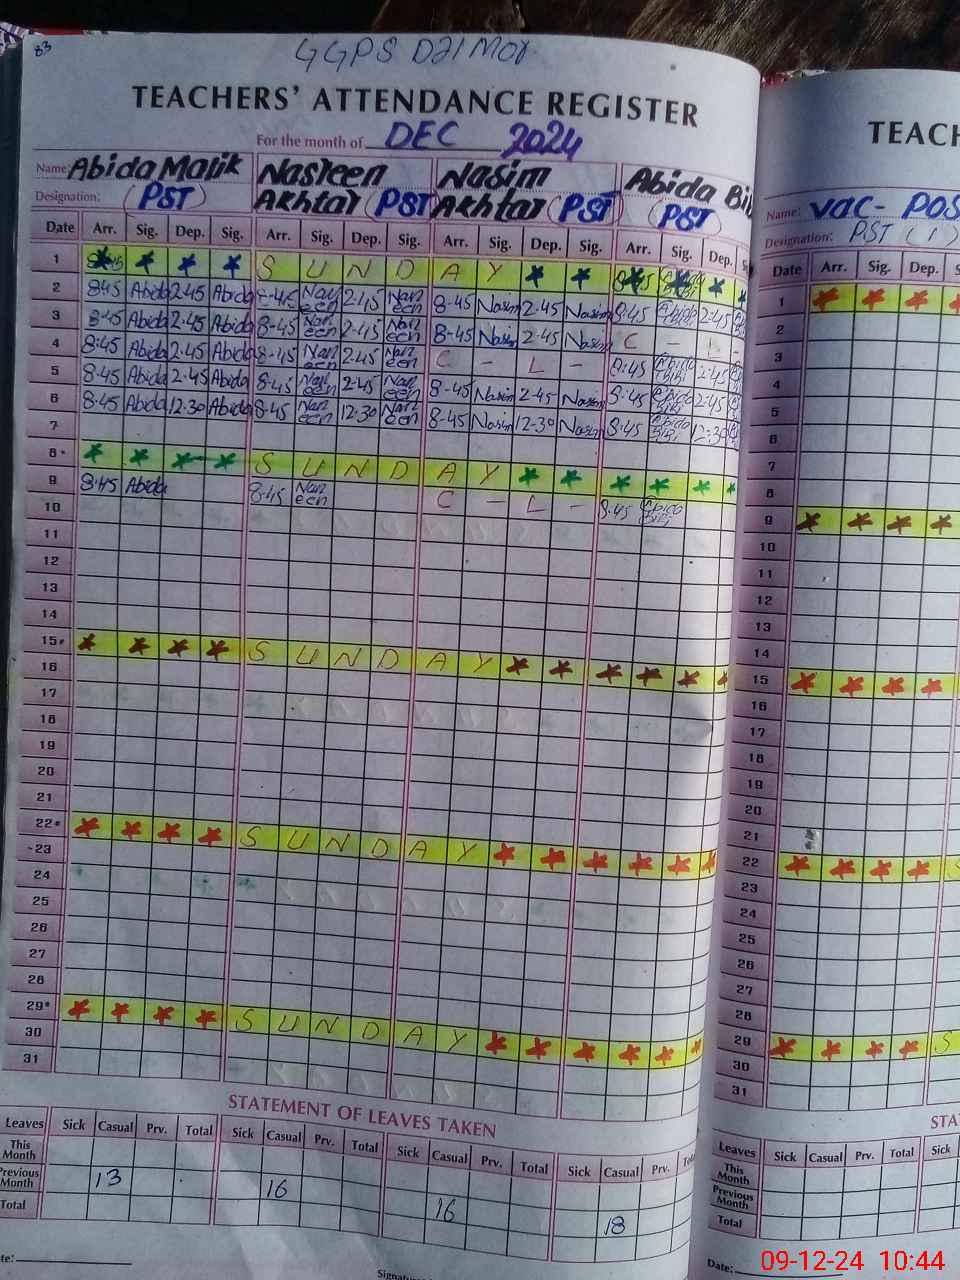 83
GGPS D21 Mor
TEACHERS' ATTENDANCE REGISTER
For the month of DEC 2024
Name: Abida Malik Nasreen Akhtar (PST) Nasim Akhtar (PST) Abida Bi
Designation: (PST) (PST)
Date Arr. Sig. Dep. Sig. Arr. Sig. Dep. Sig. Arr. Sig. Dep. Sig. Arr. Sig. Dep. S
1 8:45 * * * S U N D A Y * * 8:45 * * *
2 8:45 Abida 2:45 Abida 8-45 Nasreen 2:45 Nasreen 8-45 Nasim 2-45 Nasim 8:45 Abida Bibi 2:45
3 8:45 Abida 2:45 Abida 8-45 Nasreen 2:45 Nasreen 8-45 Nasim 2-45 Nasim C - L -
4 8:45 Abida 2:45 Abida 8-45 Nasreen 2:45 Nasreen C - L - 8:45 Abida Bibi 2:45
5 8:45 Abida 2:45 Abida 8:45 Nasreen 2:45 Nasreen 8-45 Nasim 2-45 Nasim 8:45 Abida Bibi 2:45
6 8:45 Abida 12:30 Abida 8:45 Nasreen 12:30 Nasreen 8-45 Nasim 12-30 Nasim 8:45 Abida Bibi 12:30
7
8 * * * * S U N D A Y * * * * * *
9 8:45 Abida 8:45 Nasreen C - L - 8:45 Abida Bibi
10
11
12
13
14
15 * * * * S U N D A Y * * * * * *
16
17
18
19
20
21
22 * * * * S U N D A Y * * * * * *
23
24
25
26
27
28
29 * * * * S U N D A Y * * * * * *
30
31
STATEMENT OF LEAVES TAKEN
Leaves Sick Casual Prv. Total Sick Casual Prv. Total Sick Casual Prv. Total Sick Casual Prv. Tot
This Month
Previous Month 13 16 16 18
Total
te:
Signatur
TEACH
Name: Vac- Pos
Designation: PST (1)
Date Arr. Sig. Dep. S
1 * * * *
2
3
4
5
6
7
8
9 * * * *
10
11
12
13
14
15 * * * *
16
17
18
19
20
21
22 * * * * S
23
24
25
26
27
28
29 * * * * S
30
31
STA
Leaves Sick Casual Prv. Total Sick
This Month
Previous Month
Total
Date:
09-12-24 10:44